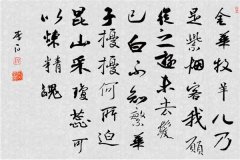 金華牧羊儿乃
是紫烟客我願
從之遊未去髮
已白不知繁華
子擾擾何所迫
昆山采瓊蕊可
以煉精魄